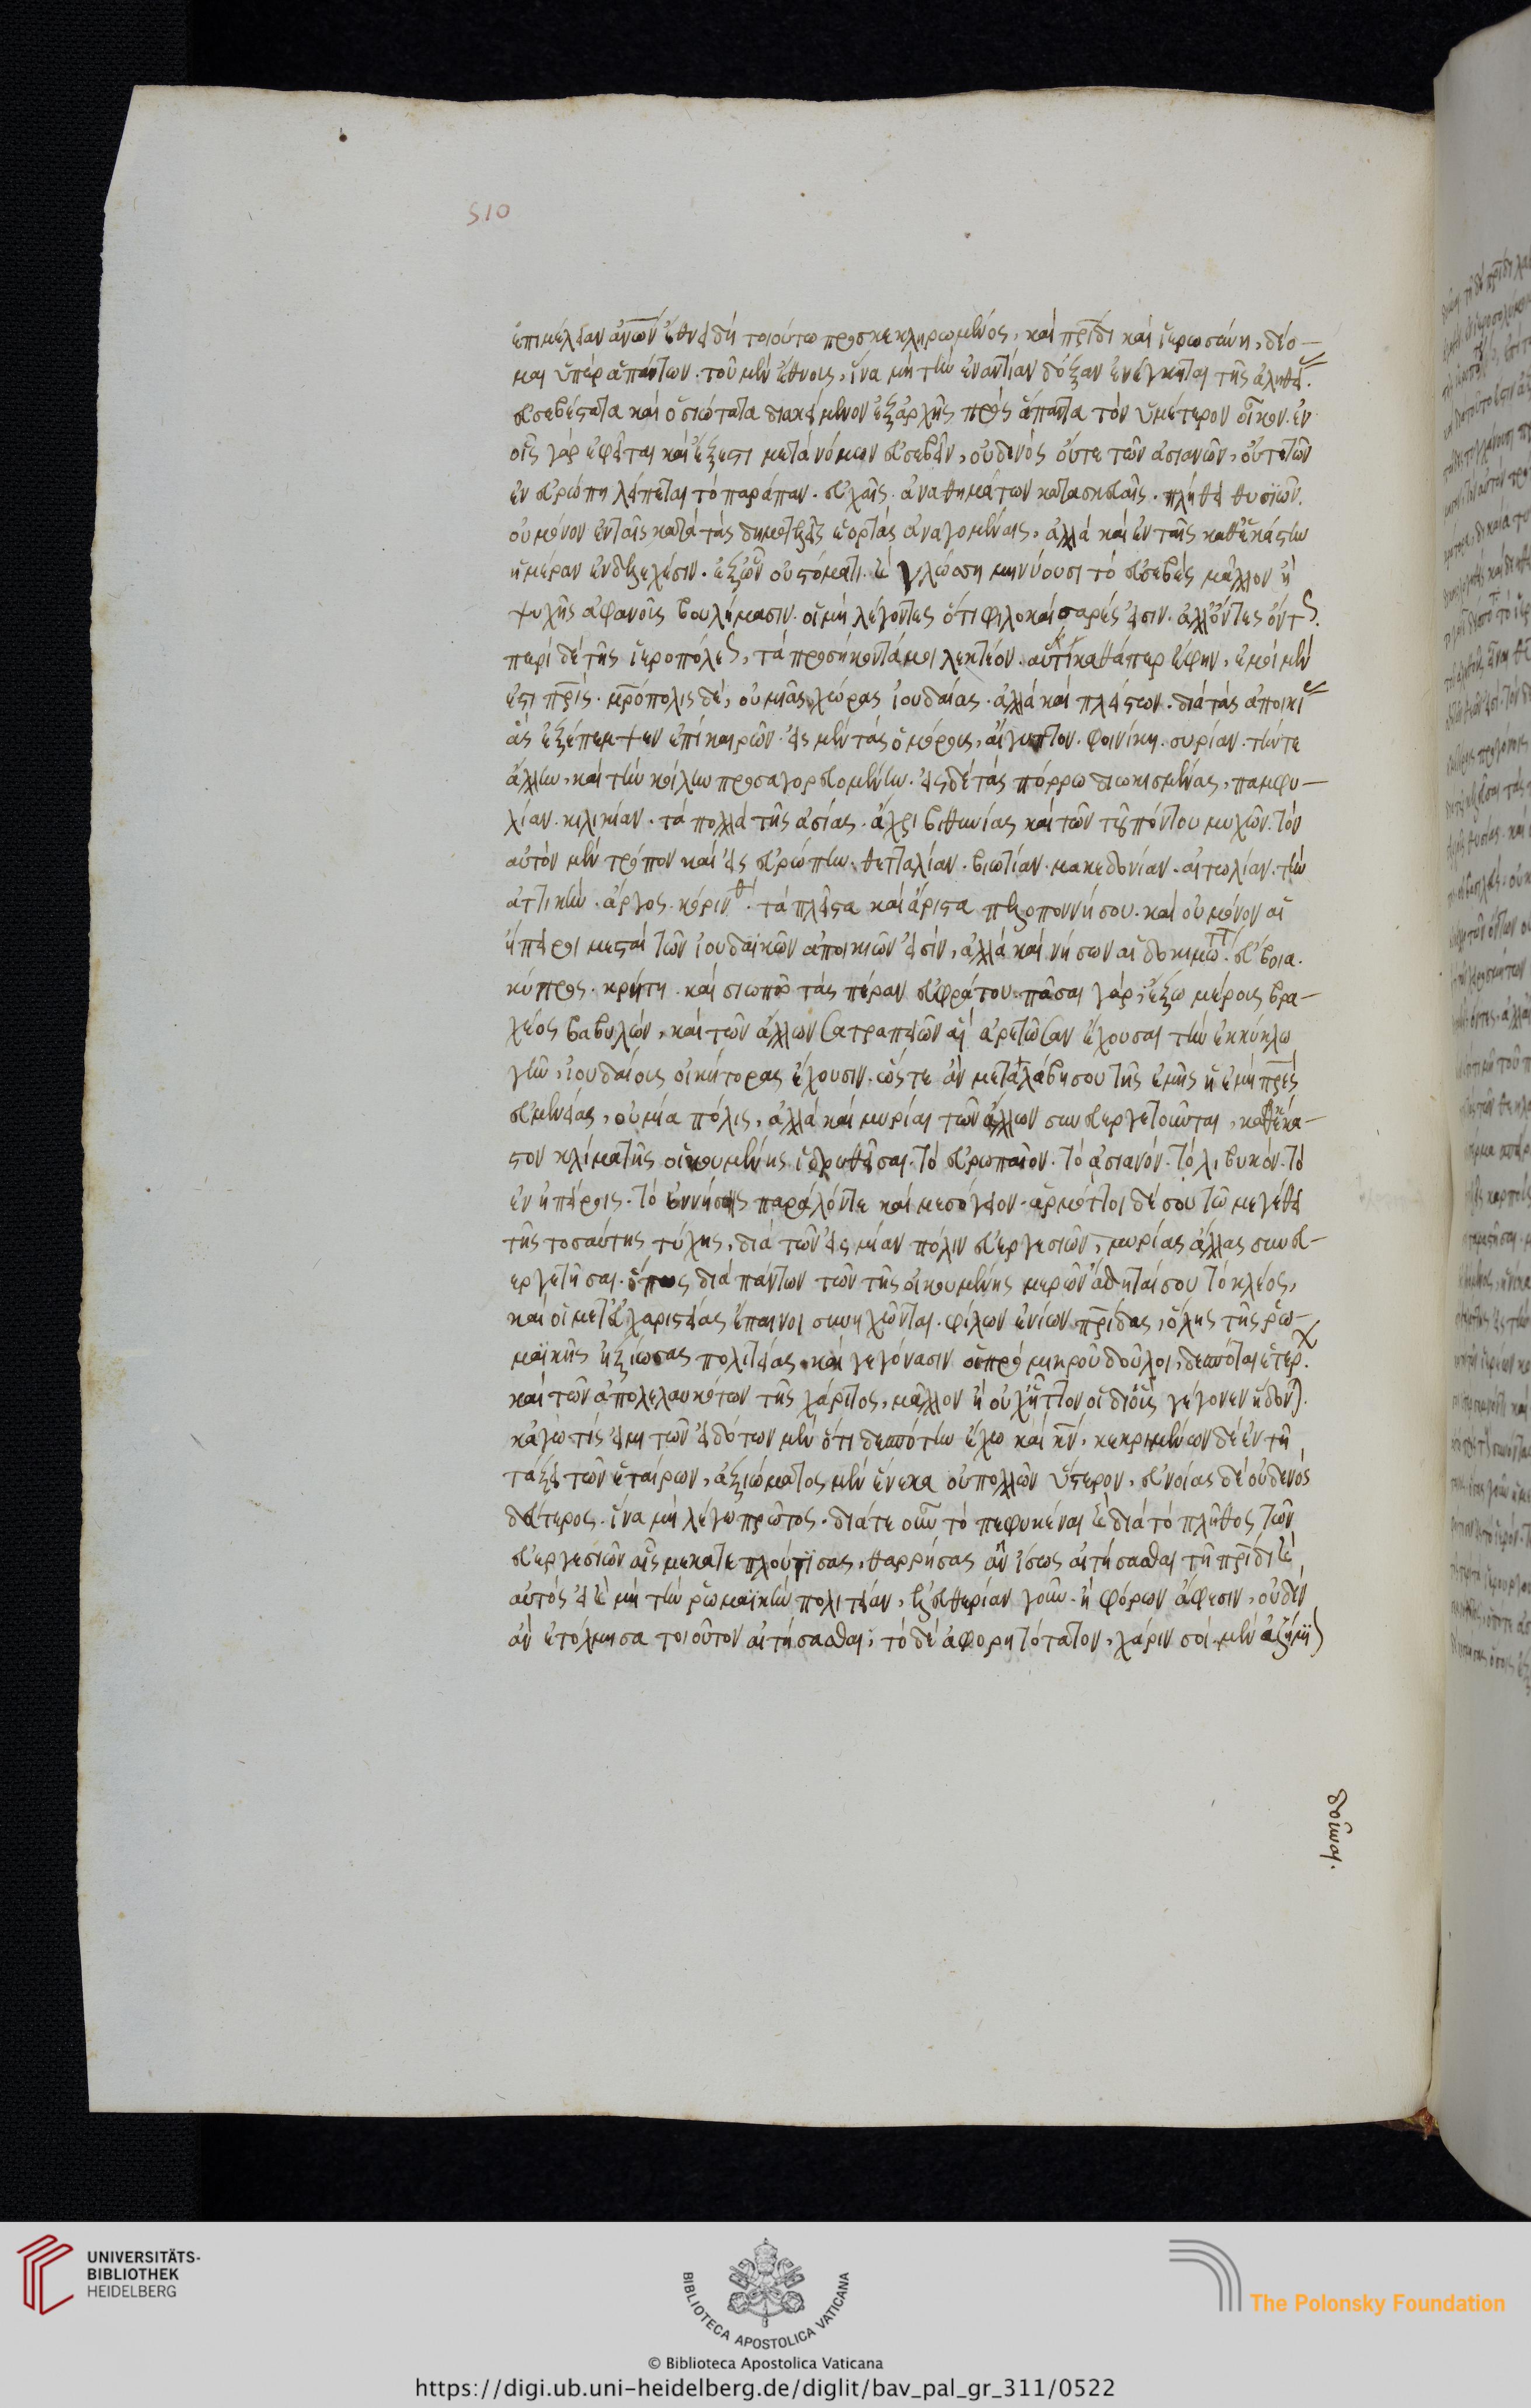 510
ἐπιμέλειαν ἀνων̅ ἔθνει δὴ τοιούτω προσκεκληρωμένος, καὶ πρι̅δι καὶ ἱερωσύνη, δέο-
μαι ὑπὲρ ἁπάντων. τοῦ μὲν ἔθνους, ἵνα μὴ τὴν ἐναντίαν δόξαν ἐνέγκηται τῆς ἀληθεί.
εὐσεβέστατα καὶ ὁσιώτατα διακείμενον ἐξαρχῆς πρὸς ἅπαντα τὸν ὑμέτερον οἶκον. ἐν
οἷς γὰρ ἐφεῖται καὶ ἔξεστι μετὰ νόμων εὐσεβεῖν, οὐδενὸς οὔτε τῶν ἀσιανῶν, οὔτε τῶν
ἐν εὐρώπη λείπεται τὸ παράπαν. εὐχαῖς. ἀναθημάτων κατασκευαῖς. πλήθει θυσιῶν.
οὐ μόνον ἐν ταῖς κατὰ τὰς δημοτελεῖς ἑορτὰς ἀναγομέναις, ἀλλὰ καὶ ἐν ταῖς καθ' ἑκάστην
ἡμέραν ἐνδελεχέσιν. ἐξ ὧν οὐ στόματι καὶ γλώσση μηνύουσι τὸ εὐσεβὲς μᾶλλον ἢ
ψυχῆς ἀφανοῦς βουλήμασιν. οἱ μὴ λέγοντες ὅτι φιλοκαίσαρές εἰσιν. ἀλλ' ὄντες ὄντως.
περὶ δὲ τῆς ἱεροπόλεως, τὰ προσήκοντά μοι λεκτέον. αὕτη καθάπερ ἔφην, ἐμοὶ μὲν
ἐστι πρι̅ς. μρ̅όπολις δὲ, οὐ μιᾶς χώρας ἰουδαίας. ἀλλὰ καὶ πλείστων. διὰ τὰς ἀποικί
ἃς ἐξέπεμψεν ἐπὶ καιρῶν. εἰς μὲν τὰς ὁμόρους, αἴγυπτον. φοινίκη. συρίαν. τήν τε
ἄλλην, καὶ τὴν κοίλην προσαγορευομένην. εἰς δὲ τὰς πόρρω διωκισμένας, παμφυ-
λίαν. κιλικίαν. τὰ πολλὰ τῆς ἀσίας. ἄχρι βιθυνίας καὶ τῶν τοῦ πόντου μυχῶν. τὸν
αὐτὸν μὲν τρόπον καὶ εἰς εὐρώπην. θετταλίαν. βιωτίαν. μακεδονίαν. αἰτωλίαν. τὴν
ἀττικὴν. ἄργος. κόρινθ. τὰ πλεῖστα καὶ ἄριστα πελοποννήσου. καὶ οὐ μόνον αἱ
ἤπειροι μεσταὶ τῶν ἰουδαϊκῶν ἀποικιῶν εἰσίν, ἀλλὰ καὶ νήσων αἱ δοκιμώτ. εὔβοια.
κύπρος. κρήτη. καὶ σιωπῶ τὰς πέραν εὐφράτου. πᾶσαι γὰρ ἔξω μέρους βρα-
χέος βαβυλὼν, καὶ τῶν ἄλλων σατραπειῶν αἱ ἀρετῶσαν ἔχουσαι τὴν ἐν κύκλω
γῆν, ἰουδαίους οἰκήτορας ἔχουσιν. ὥστε ἂν μεταλάβη σου τῆς ἐμῆς ἡ ἐμὴ πρι̅ς
εὐμενείας, οὐ μία πόλις, ἀλλὰ καὶ μυρίαι τῶν ἄλλων συνευεργετοῦνται, καθ' ἕκα-
στον κλίμα τῆς οἰκουμένης ἱδρυθεῖσαι. τὸ εὐρωπαῖον. τὸ ἀσιανόν. τὸ λιβυκόν. τὸ
ἐν ἠπείροις. τὸ ἐν νήσοις παράλόν τε καὶ μεσόγειον. ἁρμόττει δέ σου τῶ μεγέθει
τῆς τοσαύτης τύχης, διὰ τῶν εἰς μίαν πόλιν εὐεργεσιῶν, μυρίας ἄλλας συνευ-
εργετῆσαι. ὅπως διὰ πάντων τῶν τῆς οἰκουμένης μερῶν ἄδηταί σου τὸ κλέος,
καὶ οἱ μετ' εὐχαριστίας ἔπαινοι συνηχῶνται. φίλων ἐνίων πρι̅δας, ὅλης τῆς ῥω-
μαϊκῆς ἠξίωσας πολιτείας. καὶ γεγόνασιν οἱ πρὸ μικροῦ δοῦλοι, δεσπόται ἑτέρ.
καὶ τῶν ἀπολελαυκότων τῆς χάριτος, μᾶλλον ἢ οὐχ ἧττον οἱ δι' οὓς γέγονεν ἥδον.
κἀγώ τίς εἰμι τῶν εἰδότων μὲν ὅτι δεσπότην ἔχω καὶ κν̅. κεκριμένων δὲ ἐν τῆ
τάξει τῶν ἑταίρων, ἀξιώματος μὲν ἕνεκα οὐ πολλῶν ὕστερον, εὐνοίας δὲ οὐδενὸς
δεύτερος. ἵνα μὴ λέγω πρῶτος. διά τε οὖν τὸ πεφυκέναι καὶ διὰ τὸ πλῆθος τῶν
εὐεργεσιῶν αἷς με κατεπλούτισας, θαρρήσας ἂν ἴσως αἰτήσασθαι τῆ πρι̅δι καὶ
αὐτὸς εἰ καὶ μὴ τὴν ῥωμαϊκὴν πολιτείαν, ἐλευθερίαν γοῦν. ἢ φόρων ἄφεσιν, οὐδὲν
ἂν ἐτόλμησα τοιοῦτον αἰτήσασθαι, τὸ δὲ ἀφορητότατον, χάριν σοὶ μὲν ἀζήμι
δοῦναι.
UNIVERSITÄTS-
BIBLIOTHEK
HEIDELBERG
BIBLIOTECA APOSTOLICA VATICANA
The Polonsky Foundation
© Biblioteca Apostolica Vaticana
https://digi.ub.uni-heidelberg.de/diglit/bav_pal_gr_311/0522